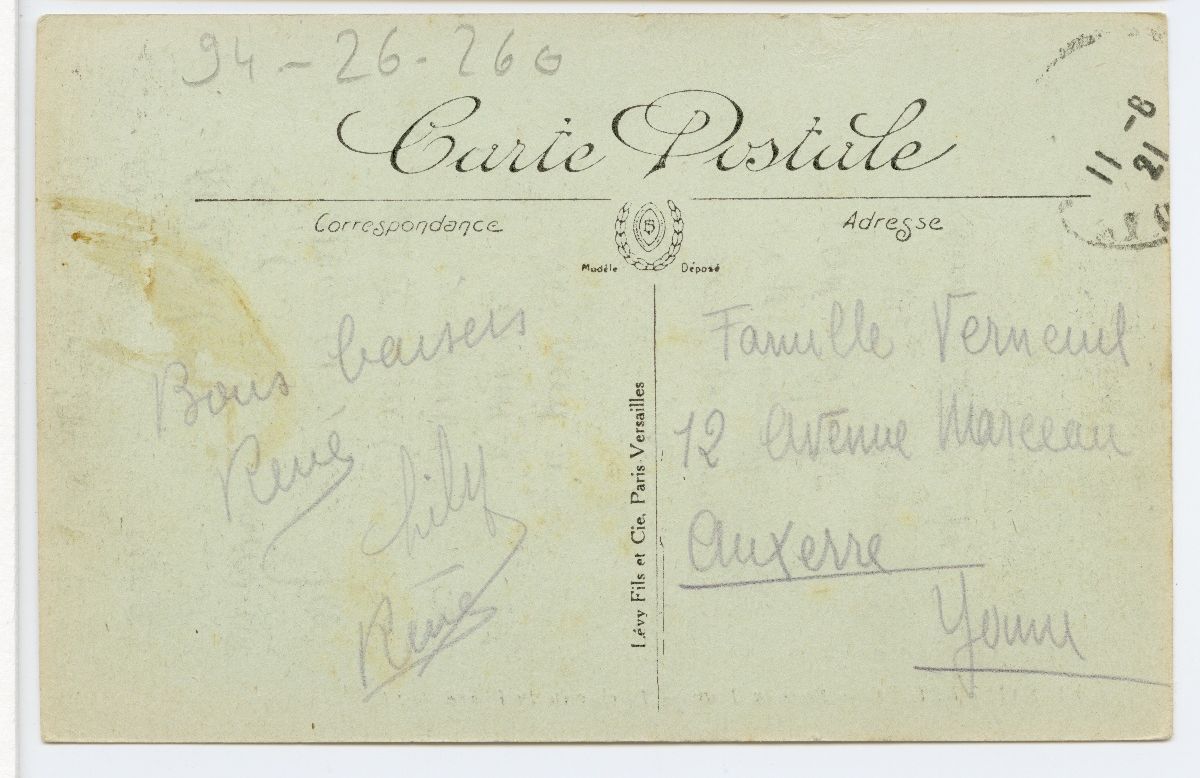 94-26-260
Carte Postale
Correspondance
Adresse
S
Modèle Déposé
11 -8
21
Bons baisers
René
Lily
René
Lévy Fils et Cie, Paris-Versailles
Famille Verneuil
12 Avenue Marceau
Auxerre
Yonne